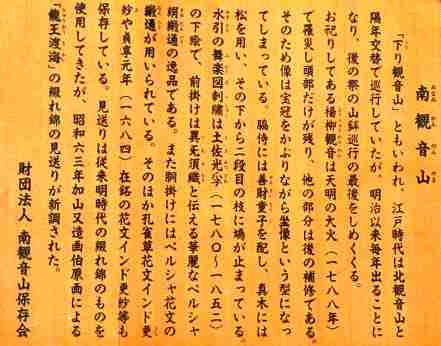 南觀音山
「下り観音山」ともいわれ、江戸時代は北観音山と
隔年交替で巡行していたが、明治以来毎年出ることに
なり、後の祭の山鉾巡行の最後をしめくくる。
お祀りしてある楊柳観音は天明の大火（一七八八年）
で罹災し頭部だけが残り、他の部分は後の補修である。
そのため像は宝冠をかぶりながら坐像という型になっ
てしまっている。脇侍には善財童子を配し、真木には
松を用い、その下から二段目の枝に鳩が止まっている。
水引の舞楽図刺繍は土佐光孚（一七八〇〜一八五二）
の下絵で、前掛けは異无須織と伝える華麗なペルシャ
絹緞通の逸品である。また胴掛けにはペルシャ花文の
緞通が用いられている。そのほか孔雀草花文インド更
紗や貞享元年（一六八四）在銘の花文インド更紗等も
保存している。見送りは従来明時代の綴れ錦のものを
使用してきたが、昭和六三年加山又造画伯原画による
「龍王渡海」の綴れ錦の見送りが新調された。
財団法人 南觀音山保存会